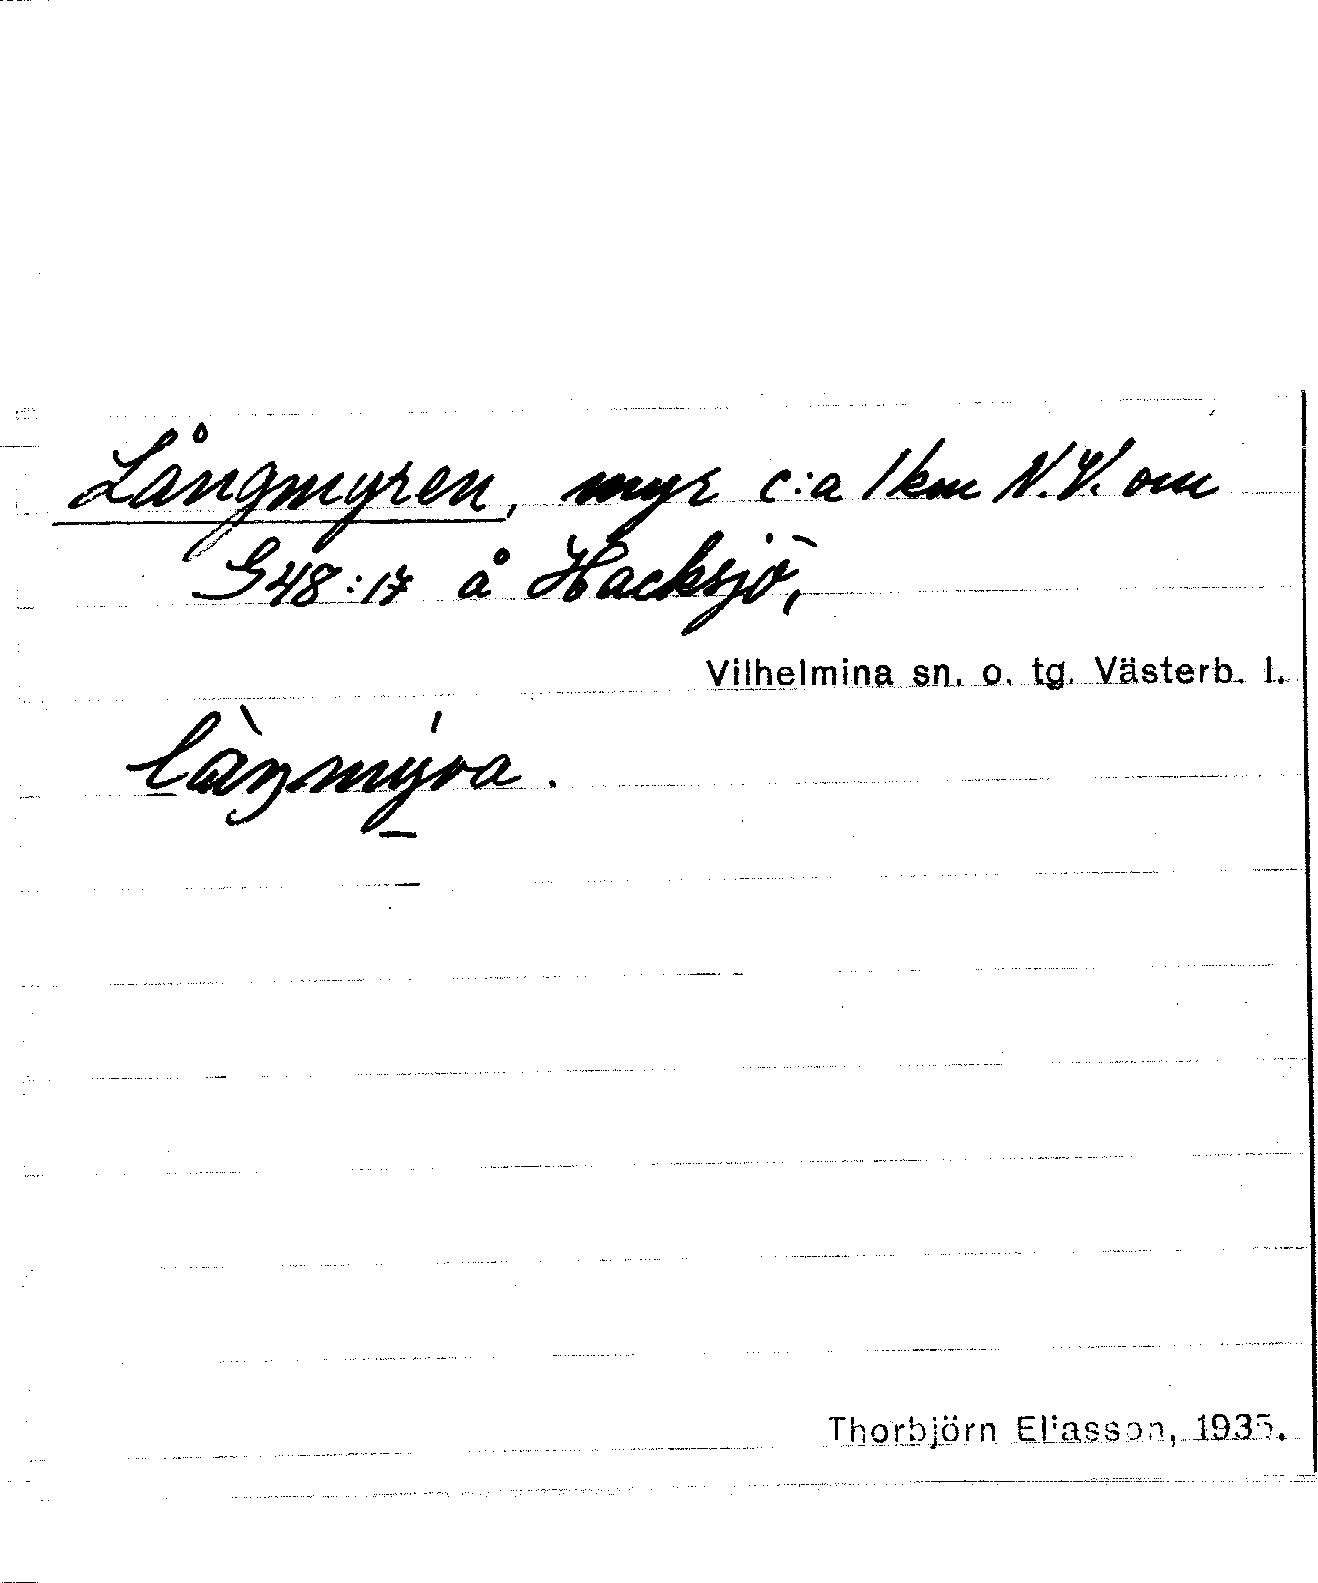 Långmyren, myr c:a 1 km N.V. om
G48:17 å Hacksjö,
Vilhelmina sn. o. tg. Västerb. l.
làŋmýra.
Thorbjörn Eliasson, 1935.